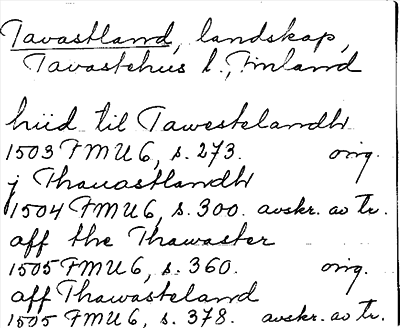 Tavastland, landskap,
Tavastehus l., Finland
hiid til Tawestelandh
1503 FMU 6, s. 273. orig.
j Thauastlandh
1504 FMU 6, s. 300. avskr. av Tr.
aff the Thawaster
1505 FMU 6, s. 360. orig.
aff Thawasteland
1505 FMU 6, s. 378. avskr. av Tr.